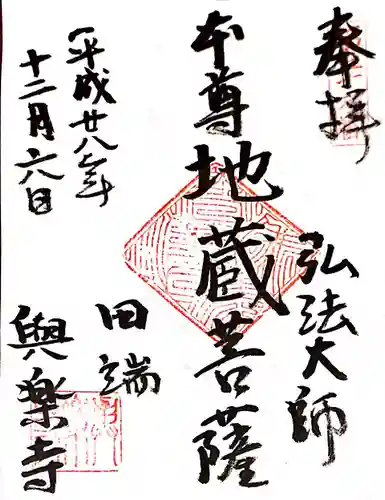 奉拝
弘法大師
本尊
地蔵菩薩
平成廿八年
十二月六日
田端
與楽寺